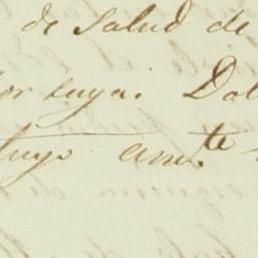 de salud de
suya. Dol
tuyo am.te